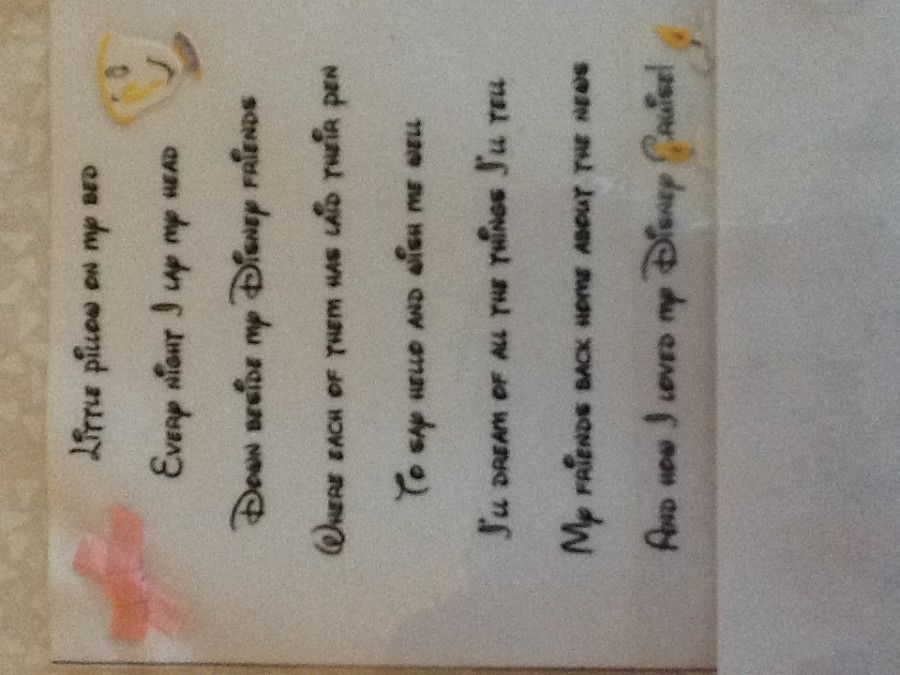 Little pillow on my bed
Every night I lay my head
Down beside my Disney friends
Where each of them has laid their pen
To say hello and wish me well
I'll dream of all the things I'll tell
My friends back home about the news
And how I loved my Disney Cruise!